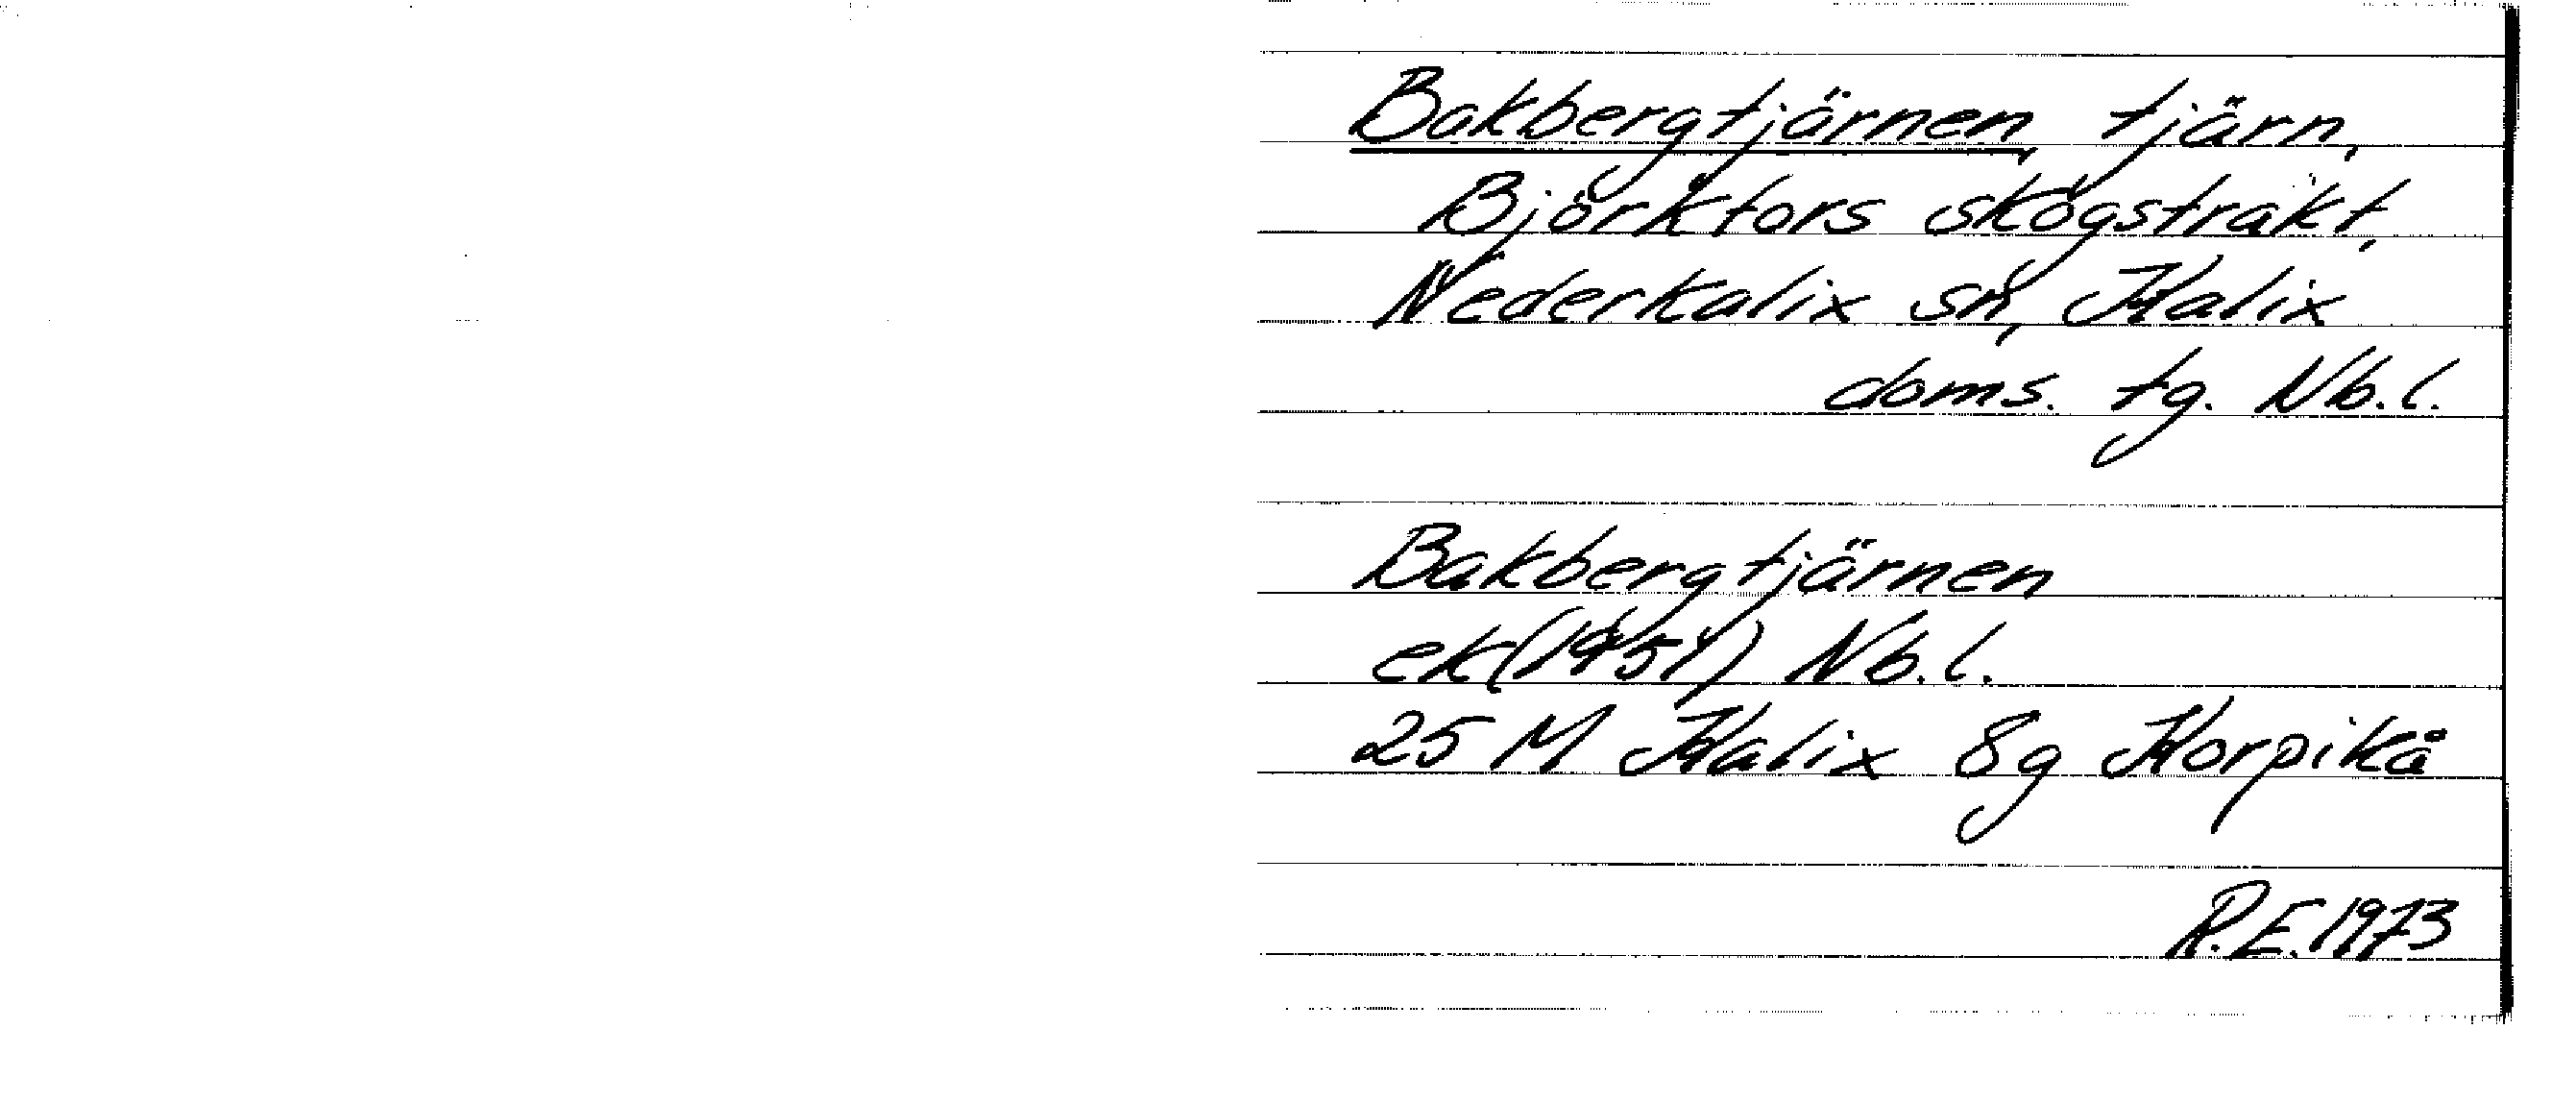 Bakbergtjärnen, tjärn,
Björkfors skogstrakt,
Nederkalix sn, Kalix
doms. tg. Nb.l.
Bakbergtjärnen
ek(1951) Nb.l.
25 M Kalix 8g Korpikå
R.E. 1973